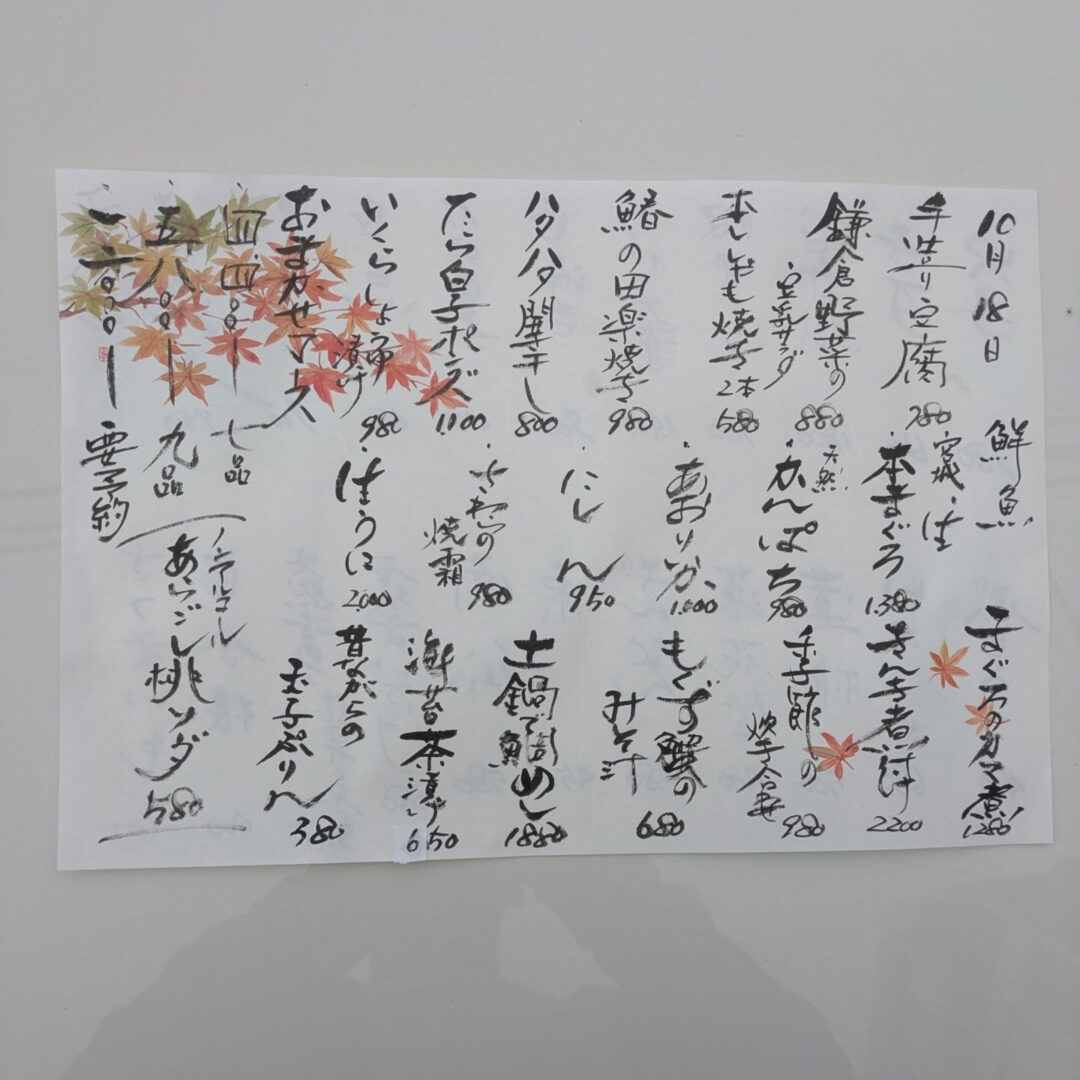 10月18日
手造り豆腐
780
鎌倉野菜の
・豆乳サラダ
880
本ししゃも焼き
2本
580
鰆の田楽焼き
980
ハタハタ開干し
800
たら白子ポンズ
1.100
いくらしょう油
漬け
980
おまかせコース
四.四〇〇ー七品
五.八〇〇ー九品
一二.〇〇〇ー要予約
鮮魚
宮城・生
本まぐろ
1.380
天然
・かんぱち
980
・あおりいか
1.000
・にしん
950
・さわらの
焼霜
980
・生うに
2000
ノンアルコール
あらごし桃ソーダ
580
本まぐろのカマ煮
1.280
きんき煮付
2200
季節の
炊き合せ
980
もくず蟹の
みそ汁
680
土鍋で鯛めし
1880
海苔茶漬け
650
昔ながらの
玉子ぷりん
380